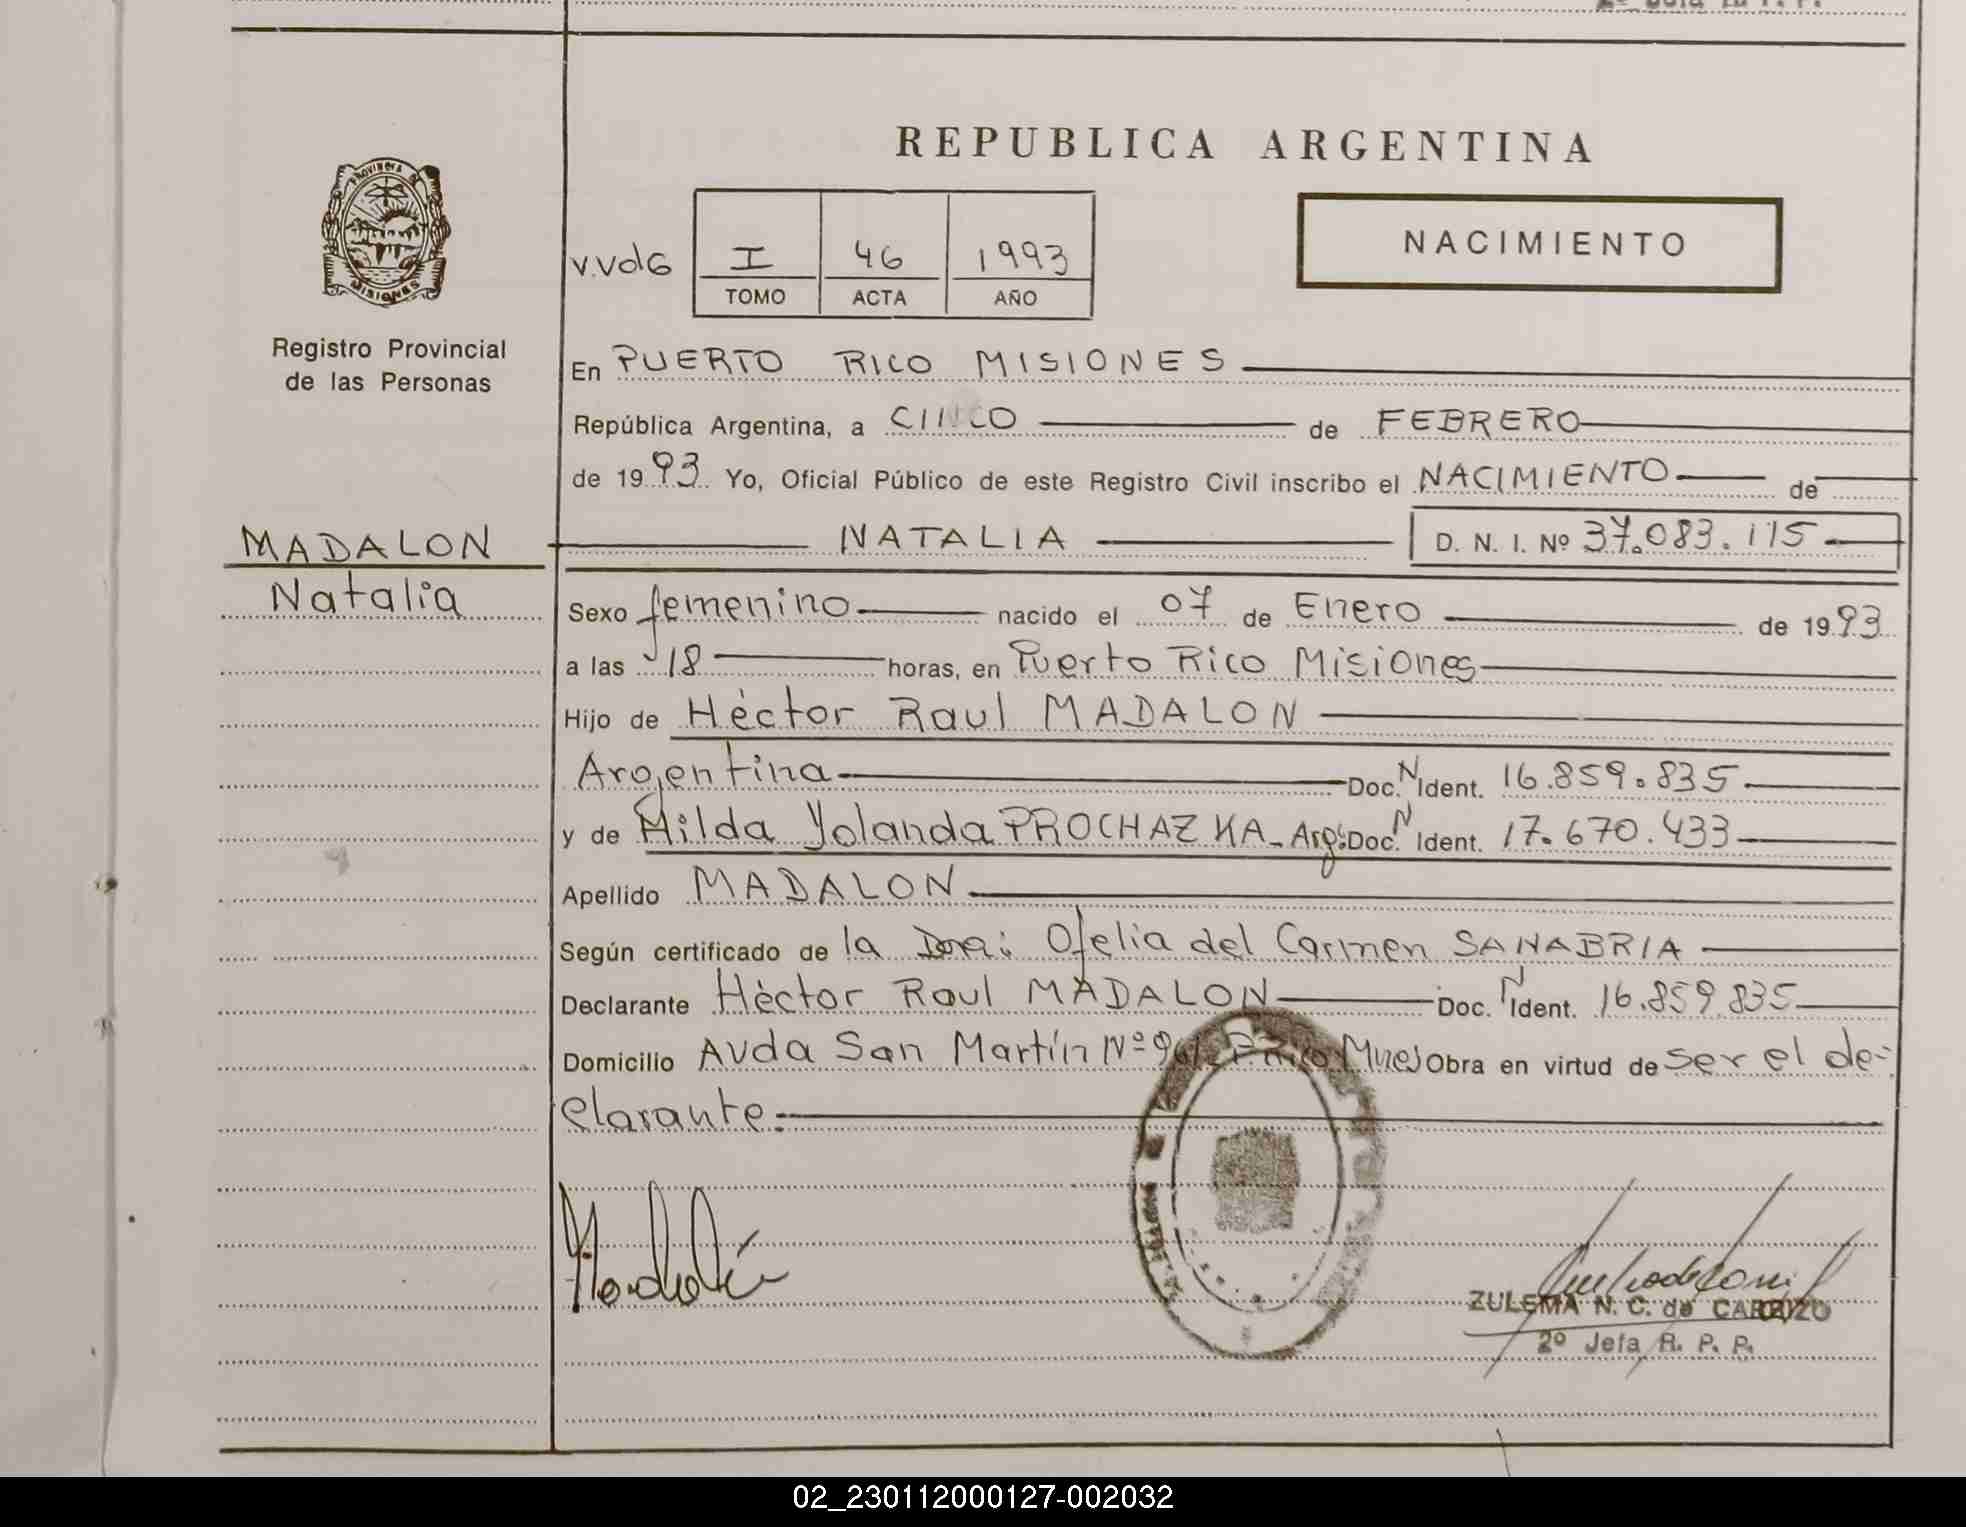 REPUBLICA ARGENTINA
PROVINCIA DE MISIONES
V.Vd6 I 46 1993
TOMO ACTA AÑO
NACIMIENTO
Registro Provincial
de las Personas
En PUERTO RICO MISIONES
República Argentina, a CINCO de FEBRERO
de 1993 Yo, Oficial Público de este Registro Civil inscribo el NACIMIENTO de
MADALON
Natalia
NATALIA D. N. I. Nº 37.083.115
Sexo femenino nacido el 07 de Enero de 1993
a las 18 horas, en Puerto Rico Misiones
Hijo de Héctor Raul MADALON
Argentina Doc. N Ident. 16.859.835
y de Hilda Yolanda PROCHAZKA - Arg: Doc. N Ident. 17.670.433
Apellido MADALON
Según certificado de la Dra: Ofelia del Carmen SANABRIA
Declarante Héctor Raul MADALON Doc. N Ident. 16.859.835
Domicilio Avda San Martín Nº P. Rico Mnes Obra en virtud de ser el de-
clarante.
ZULEMA N. C. de CARRIZO
2º Jefa R. P. P.
02_230112000127-002032